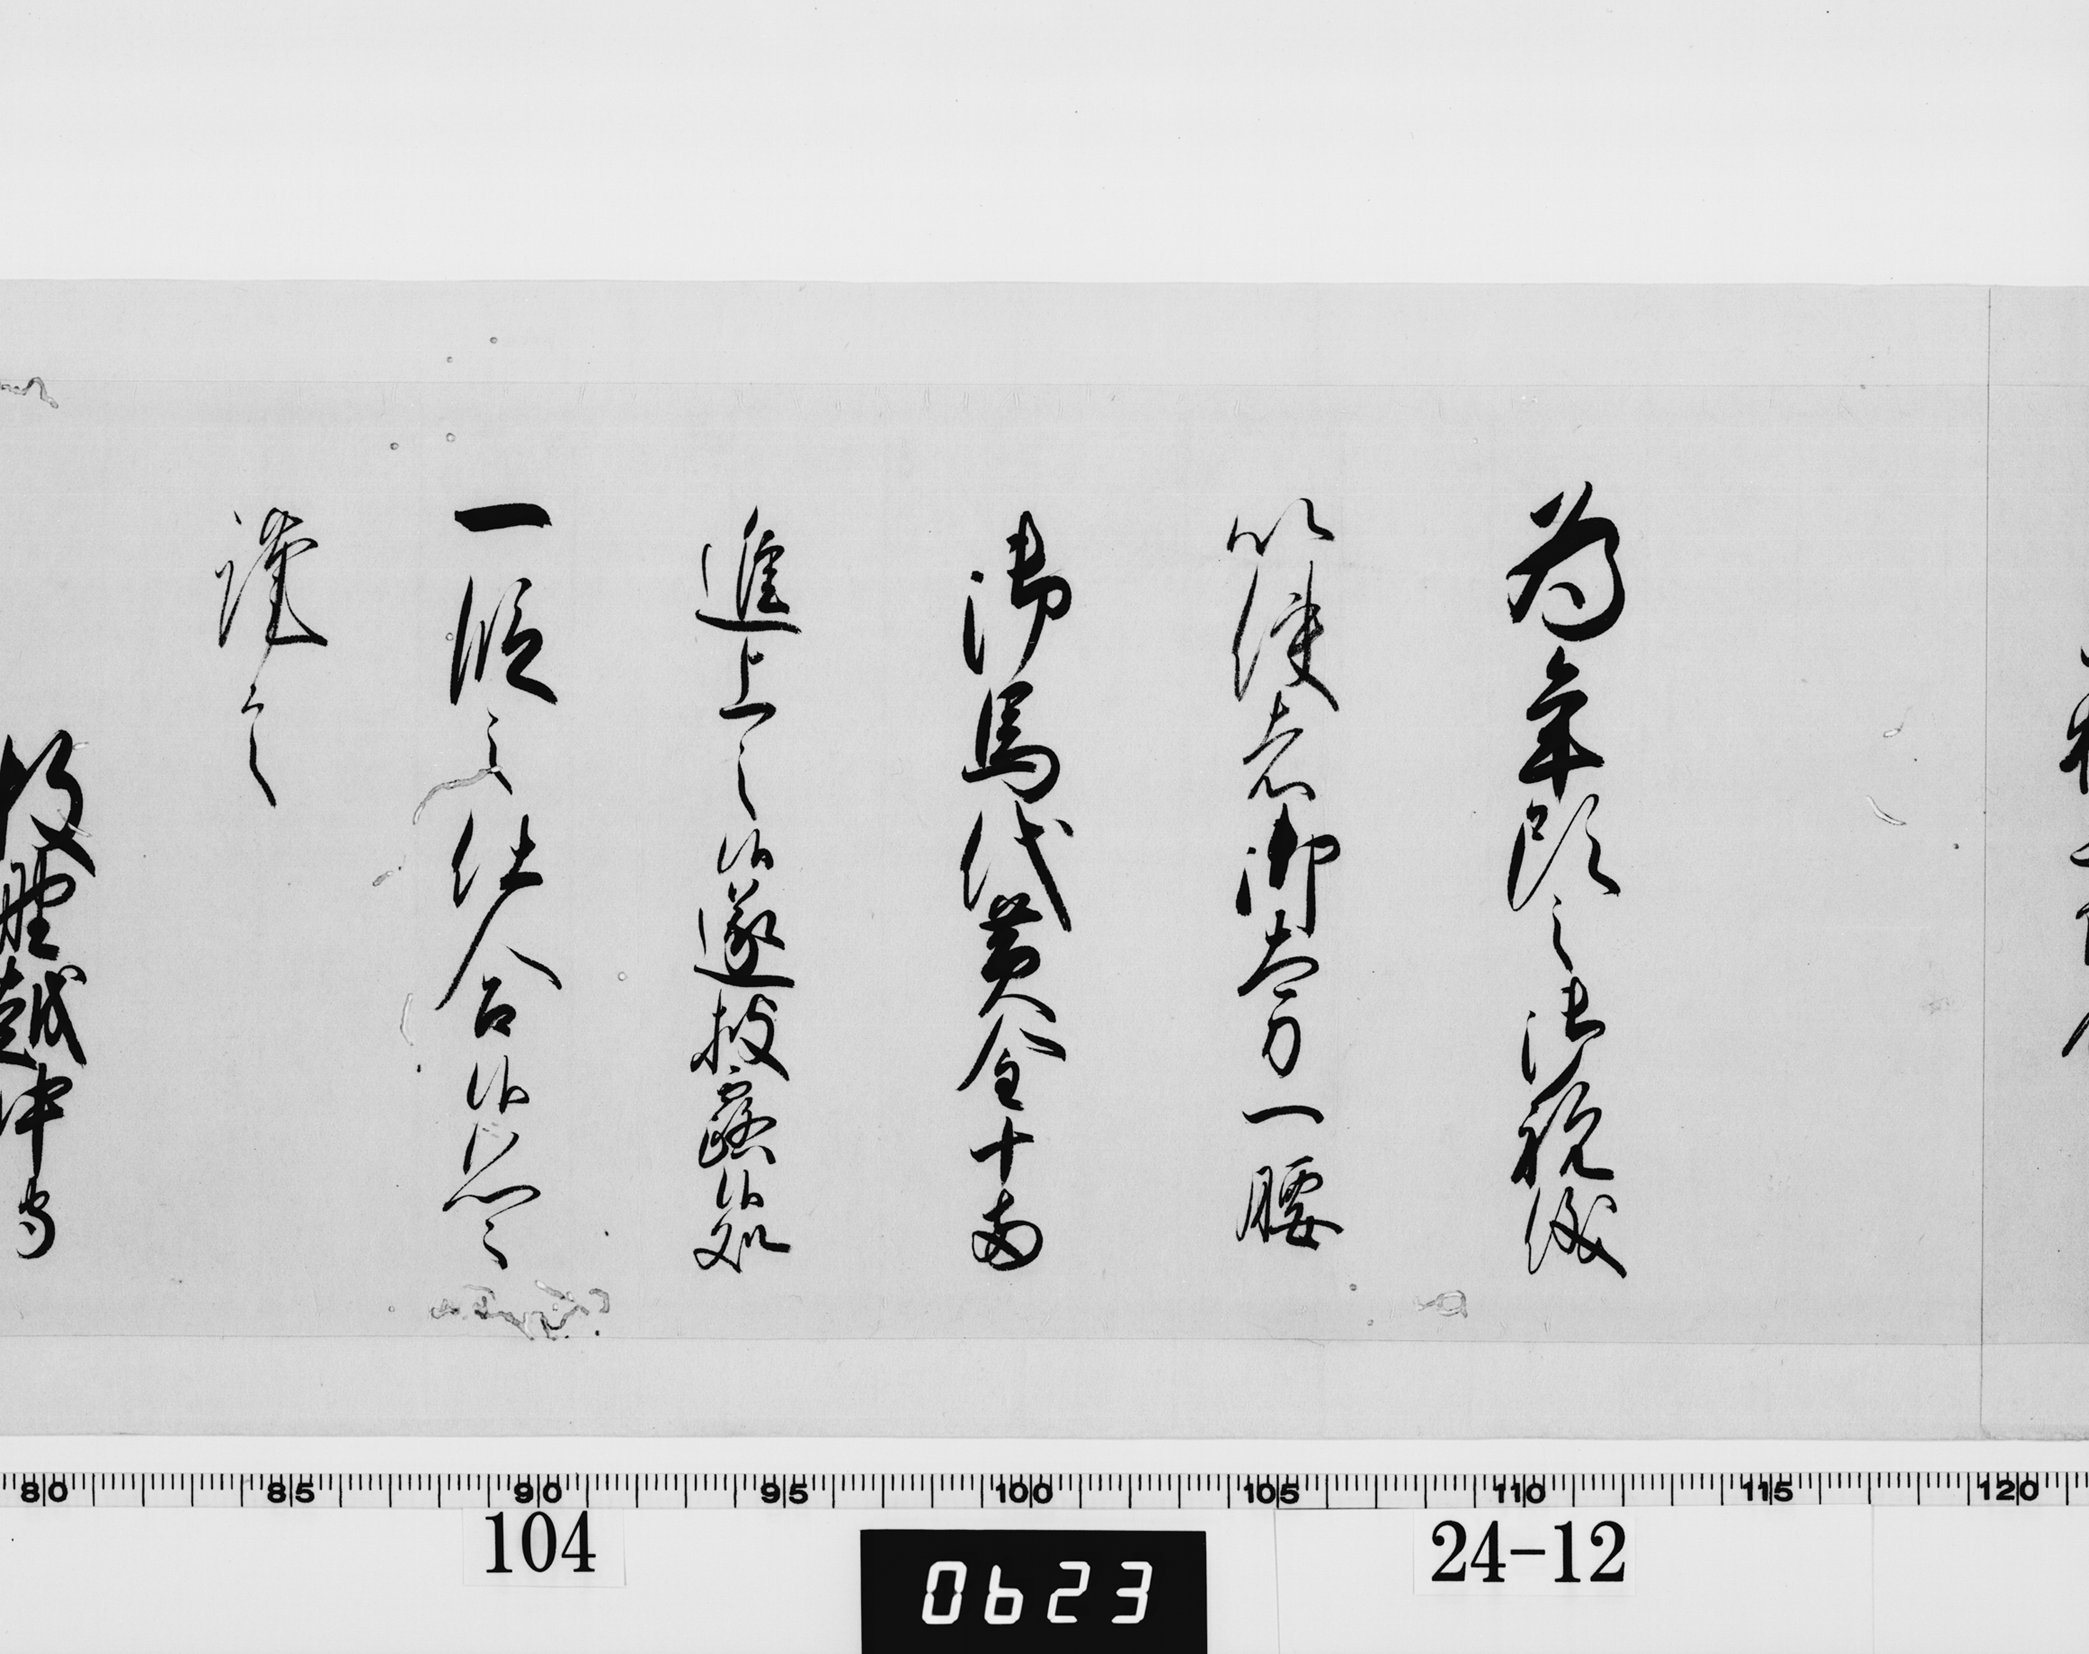 為年頭之御祝儀
以使者御太刀一腰
御馬代黄金十両
進上之候遂披露候処
一段之仕合候恐々
謹言
牧野越中守
80 85 90 95 100 105 110 115 120
104
0623
24-12